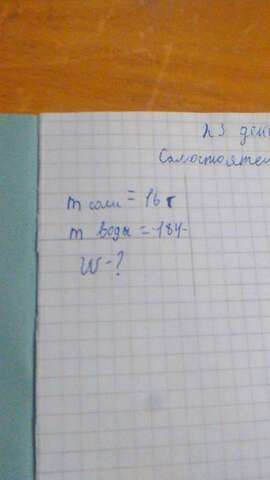 23 дек
Самостояте
m соли = 16 г
m воды = 184
W - ?